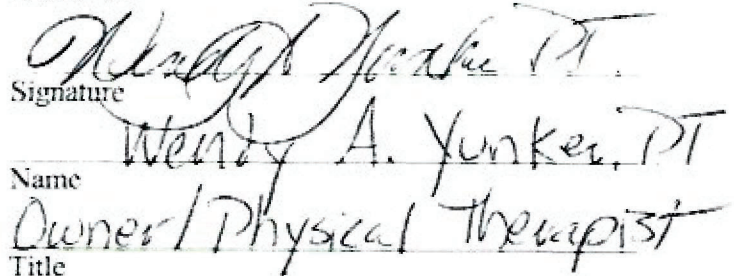 Wendy A Yunker PT.
Signature
Wendy A. Yunker, PT
Name
Owner/Physical Therapist
Title